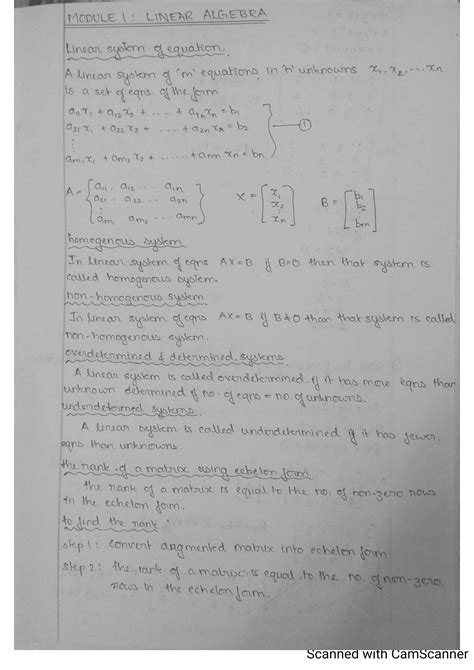 MODULE 1: LINEAR ALGEBRA
linear system of equation.
A linear system of 'm' equations in 'n' unknowns x₁, x₂, ... xn
is a set of eqns of the form
a₁₁x₁ + a₁₂x₂ + .... + a₁nxn = b₁
a₂₁x₁ + a₂₂x₂ + .... + a₂nxn = b₂
⋮ ①
am₁x₁ + am₂x₂ + ...... + amn xn = bn
A = [a₁₁ a₁₂ .... a₁n X = [x₁ B = [b₁
a₂₁ a₂₂ .... a₂n x₂ b₂
⋮ ⋮ ⋮
am₁ am₂ .... amn] xn] bm]
homogenous system
In linear system of eqns AX=B if B=0 then that system is
called homogenous system.
non-homogenous system
In linear system of eqns AX=B if B≠0 than that system is called
non-homogenous system.
overdetermined & determined systems
A linear system is called overdetermined if it has more eqns than
unknown determined if no. of eqns = no. of unknowns.
underdetermed systems.
A linear system is called underdetermined if it has fewer
eqns than unknowns
the rank of a matrix using echelon form
the rank of a matrix is equal to the no. of non-zero rows
in the echelon form.
to find the rank :
step 1: convert augmented matrix into echelon form
step 2: the rank of a matrix is equal to the no. of non-zero
rows in the echelon form.
Scanned with CamScanner